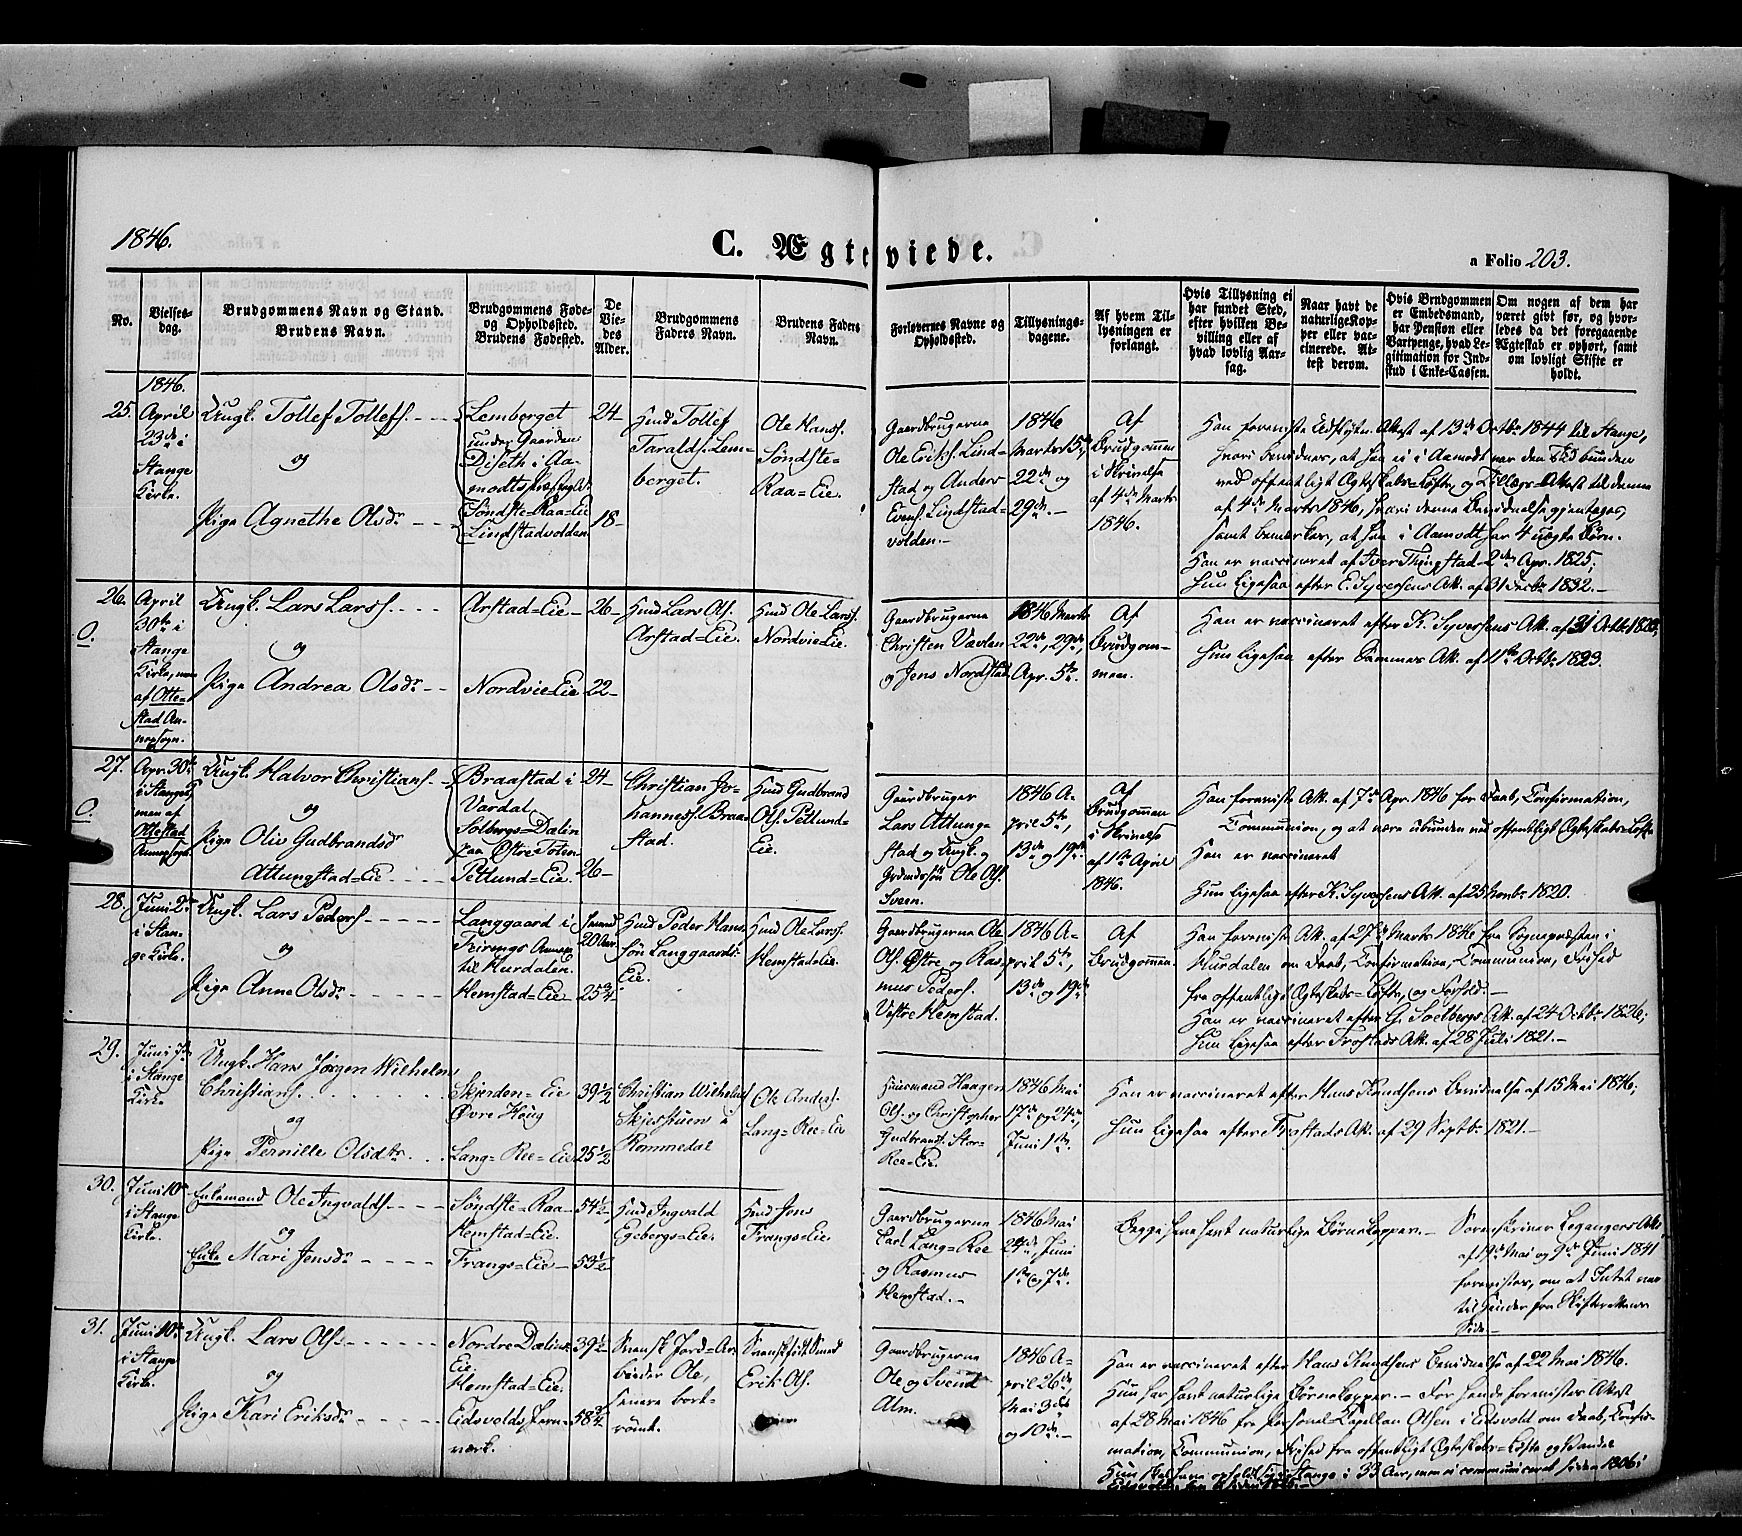 1846.
C. Ægteviede.
a Folio 203.
No.
Vielses-
dag.
Brudgommens Navn og Stand.
Brudens Navn.
Brudgommens Føde-
og Opholdssted.
Brudens Fødested.
De
Vie-
des
Alder.
Brudgommens
Faders Navn.
Brudens Faders
Navn.
Forlovernes Navne og
Opholdssted.
Tillysnings-
dagene.
Af hvem Til-
lysningen er
forlangt.
Hvis Tillysning ei
har fundet Sted,
efter hvilken Be-
villing eller af
hvad lovlig Aar-
sag.
Naar havt de
naturlige Kop-
per eller vac-
cinerede. At-
test derom.
Hvis Brudgommen
er Embedsmand,
har Pension eller
Vartpenge, hvad Le-
gitimation for Ind-
skud i Enke-Cassen.
Om nogen af dem har
været givt før, og hvor-
ledes da det foregaaende
Ægteskab er ophørt, samt
om lovligt Skifte er
holdt.
1846.
25.
April
23de i
Stange
Kirke.
Ungk. Tollef Tollefs.
og
Pige Agnethe Olsdr
Lemberget
under Gaarden
Diseth i Aa-
modts Præstegjeld.
Søndste-Raa-Eie
Lindstadvolden
24
18
Huusmd Tollef
Taralds. Lem-
berget.
Ole Hanss.
Søndste-
Raa-Eie.
Gaardbrugerne
Ole Eriks. Lind-
stad og Anders
Evens. Lindstad-
volden.
1846
Marts 15de
22de og
29de.
Af
Brudgommen
i Skrivelse
af 4de Marts
1846.
Han foreviste Udskr. Attest af 13de Octbr 1844 til Stange,
hvori bevidnes, at han ei i Aamodt var den Tid bunden
ved offentligt Ægteskabs-Løfte, og Tillægs-Attest til denne
af 4de Marts 1846, hvori denne Bevidnelse gjentages,
samt bemærkes, at han i Aamodt har 4 uægte Børn.
Han er vaccineret af Iver Thingstad 2den Apr. 1825;
Hun ligesaa efter E. Syversens Att. af 31 Decbr 1832.
26.
O.
April
30te i
Stange
Kirke, men
af Otte-
stad An-
nexsogn.
Ungk. Lars Larss.
og
Pige Andrea Olsdr
Arstad-Eie
Nordvie-Eie
26
22
Huusmd Lars Ols.
Arstad-Eie.
Huusmd Ole Larss.
Nordvie-Eie.
Gaardbrugerne
Christen Vævlen
og Jens Nordstad
1846 Marts
22de, 29de,
Apr. 5te.
Af
Brudgom-
men.
Han er vaccineret efter K. Syversens Att. af 31 Octbr
Hun ligesaa efter Sammes Att. af 11te Octbr 1823.
27.
O.
Apr. 30te
i Stange,
men af
Ottestad
Annexsogn.
Ungk. Halvor Christians.
og
Pige Oliv Gudbrandsd
Attungstad-Eie
Braastad i
Vardal
Solbergs-Dælin
paa Østre Toten
Petlund-Eie.
24
26
Christian Jo-
hanness. Braa-
stad.
Huusmd Gudbrand
Ols. Petlund-
Eie.
Gaardbruger
Lars Attunge
stad og Ungk. og
Grdmdssøn Ole Ols.
Sveen.
1846 A-
pril 5te,
13de og 19de.
Af
Brudgommen
i Skrivelse
af 1ste April
1846.
Han foreviste Att. af 7de Apr. 1846 for Daab, Confirmation,
Communion, og at være ubunden ved offentligt Ægteskabs-Løfte
Han er vaccineret
Hun ligesaa efter K. Syversens Att. af 25 Novbr 1820.
28.
Juni 2den
i Stan-
ge Kirke.
Ungk. Lars Peders.
og
Pige Anne Olsdr
Langgaard i
Feirings Annex
til Hurdalen.
Hemstad-Eie
20 Aar.
25 3/4
Huusmd Peder Hans
søn Langgaards-
Eie.
Huusmd Ole Larss.
Hemstad-Eie.
Gaardbrugerne Ole
Ols. Østre og Ras-
mus Peders.
Vestre Hemstad.
1846 A-
pril 5te,
13de og 19de
Af
Brudgommen.
Han foreviste Att. af 27de Marts 1846 fra Sognepræsten i
Hurdalen om Daab, Confirmation, Communion, Frihed
fra offentligt Ægteskabs-Løfte, og Forhold.
Han er vaccineret efter G. Soelbergs Att. af 24 Octbr 1826;
Hun ligesaa efter Frostads Att. af 28 Juli 1821.
29.
Juni 7de
i Stange
Kirke
Ungk. Hans Jørgen Wilhelm
Christians.
og
Pige Pernille Olsdtr.
Skjerden-Eie
Øvre Houg
Lang-Ree-Eie
39 1/2
25 1/2
Christian Wilhelms
Skjesstuen i
Rommedal
Ole Anders.
Lang-Ree-Eie
Huusmænd Haagen
Ols. og Christopher
Gudbrands. Stor-
Ree-Eie.
1846 Mai
17de og 24de,
Juni 1ste.
Han er vaccineret efter Hans Knudsens Bevidnelse af 15 Mai 1846;
Hun ligesaa efter Frostads Att. af 29 Septbr 1821.
30.
Juni 10de
i Stange
Kirke.
Enkemand Ole Ingvalds.
og
Enke Mari Jensdr
Søndste-Raa-
Hemstad-Eie.
Frangs-Eie
54 1/2
53 1/2
Huusmd Ingvald
Egebergs-Eie.
Huusmd Jens
Frangs-Eie
Gaardbrugerne
Carl Lang-Ree
og Rasmus
Hemstad.
1846 Mai
24de, Juni
1ste og 7de.
Begge have havt naturlige Børnekopper.
Sorenskriver Legangers Att.
af 19de Mai og 9de Juni 1841
forevistes, om at Intet var
til Hinder fra Skifterettens
Side.
31.
Juni 10de
i Stange
Kirke.
Ungk. Lars Ols.
og
Pige Kari Eriksdr
Nordre Dælin-
Eie.
Hemstad-Eie.
Eidsvolds Jern-
værk.
39 1/2
58 3/4
Svensk Jord-Ar-
beider Ole,
senere bort-
rømt.
Svensk født Smed
Erik Ols.
Gaardbrugerne
Ole og Svend
Alm.
1846 A-
pril 26de,
Mai 3die
og 10de.
Han er vaccineret efter Hans Knudsens Bevidnelse af 22 Mai 1846.
Hun har havt naturlige Børnekopper. For hende forevistes Attest
af 28 Mai 1846 fra personel Capellan Olsen i Eidsvold om Daab, Confir-
mation, Communion, Frihed fra offentligt Ægteskabs-Løfte og Vandel
Hun skal have opholdt sig i Stange i 33 Aar, men ei communiceret siden 1806 i